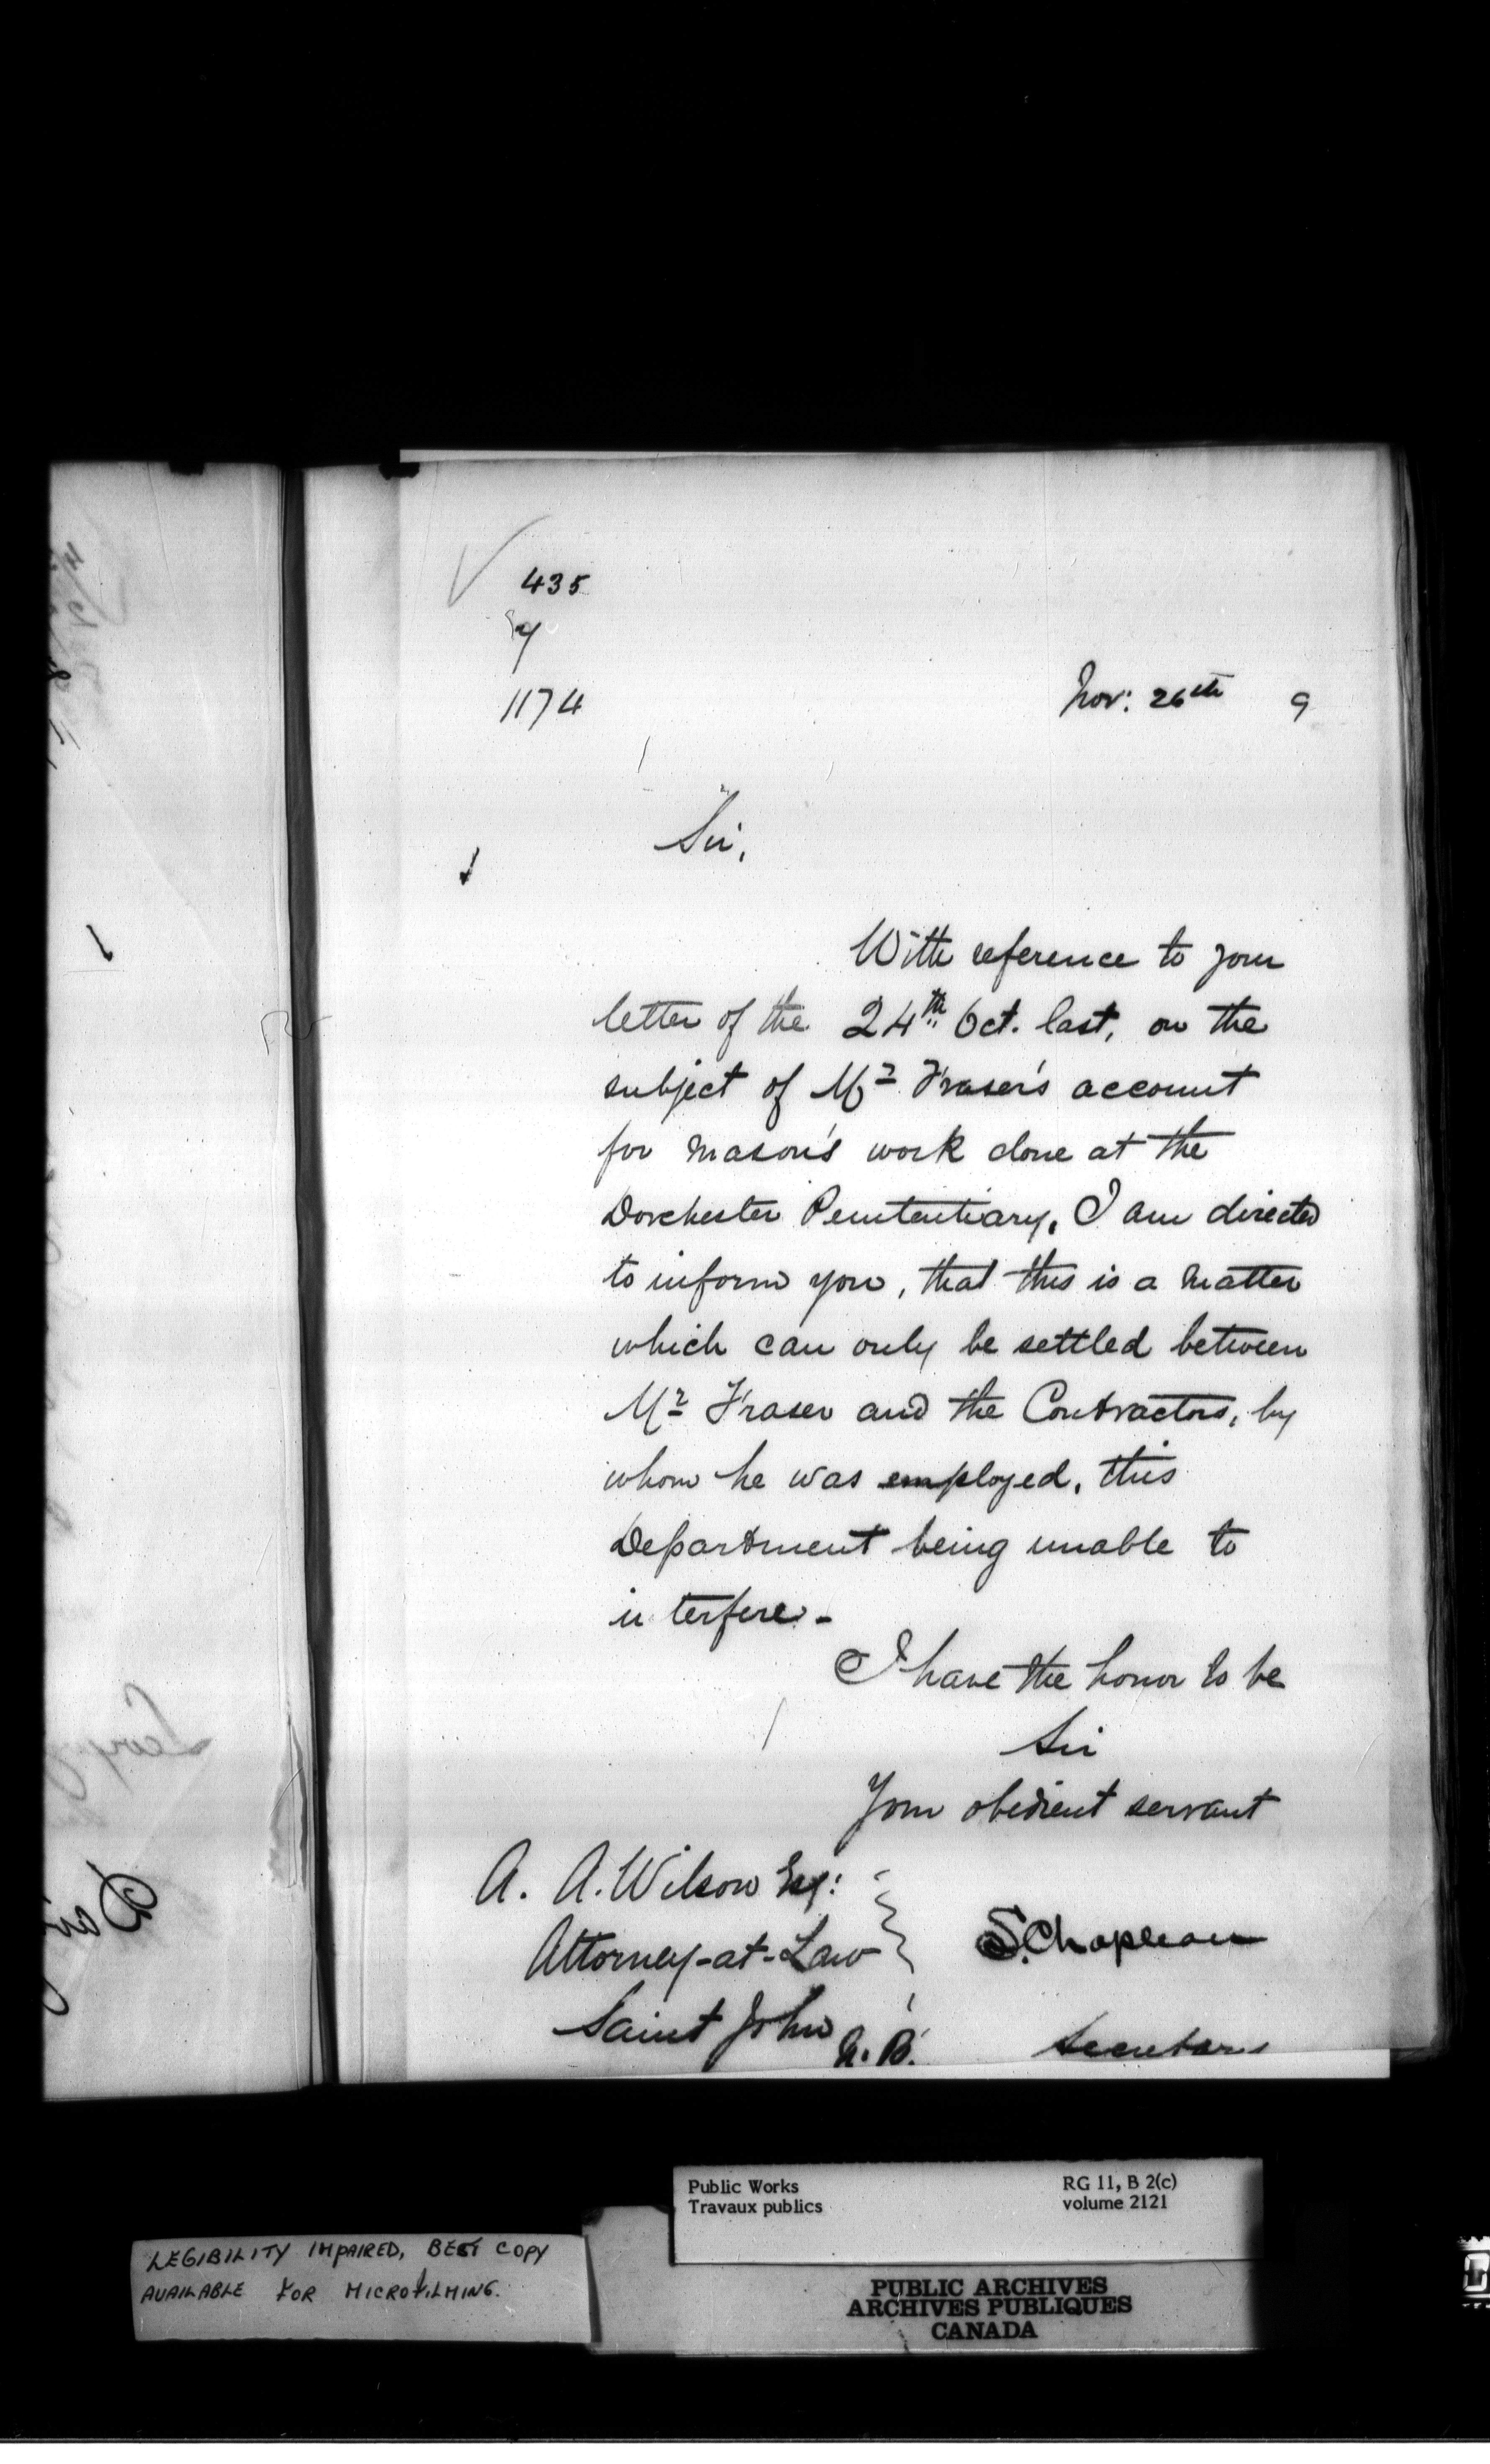 435
7
1174
Nov: 26th 9
Sir,
With reference to your
letter of the 24th Oct. last, on the
subject of Mr Fraser's account
for mason's work done at the
Dorchester Penitentiary, I am directed
to inform you, that this is a matter
which can only be settled between
Mr Fraser and the Contractors, by
whom he was employed, this
Department being unable to
interfere -
I have the honor to be
Sir
Your obedient servant
A. A. Wilson Esq:
Attorney-at-Law
Saint John N. B.
S. Chapleau
Secretary
Public Works
Travaux publics
RG 11, B 2(c)
volume 2121
LEGIBILITY IMPAIRED, BEST COPY
AVAILABLE FOR MICROFILMING.
PUBLIC ARCHIVES
ARCHIVES PUBLIQUES
CANADA